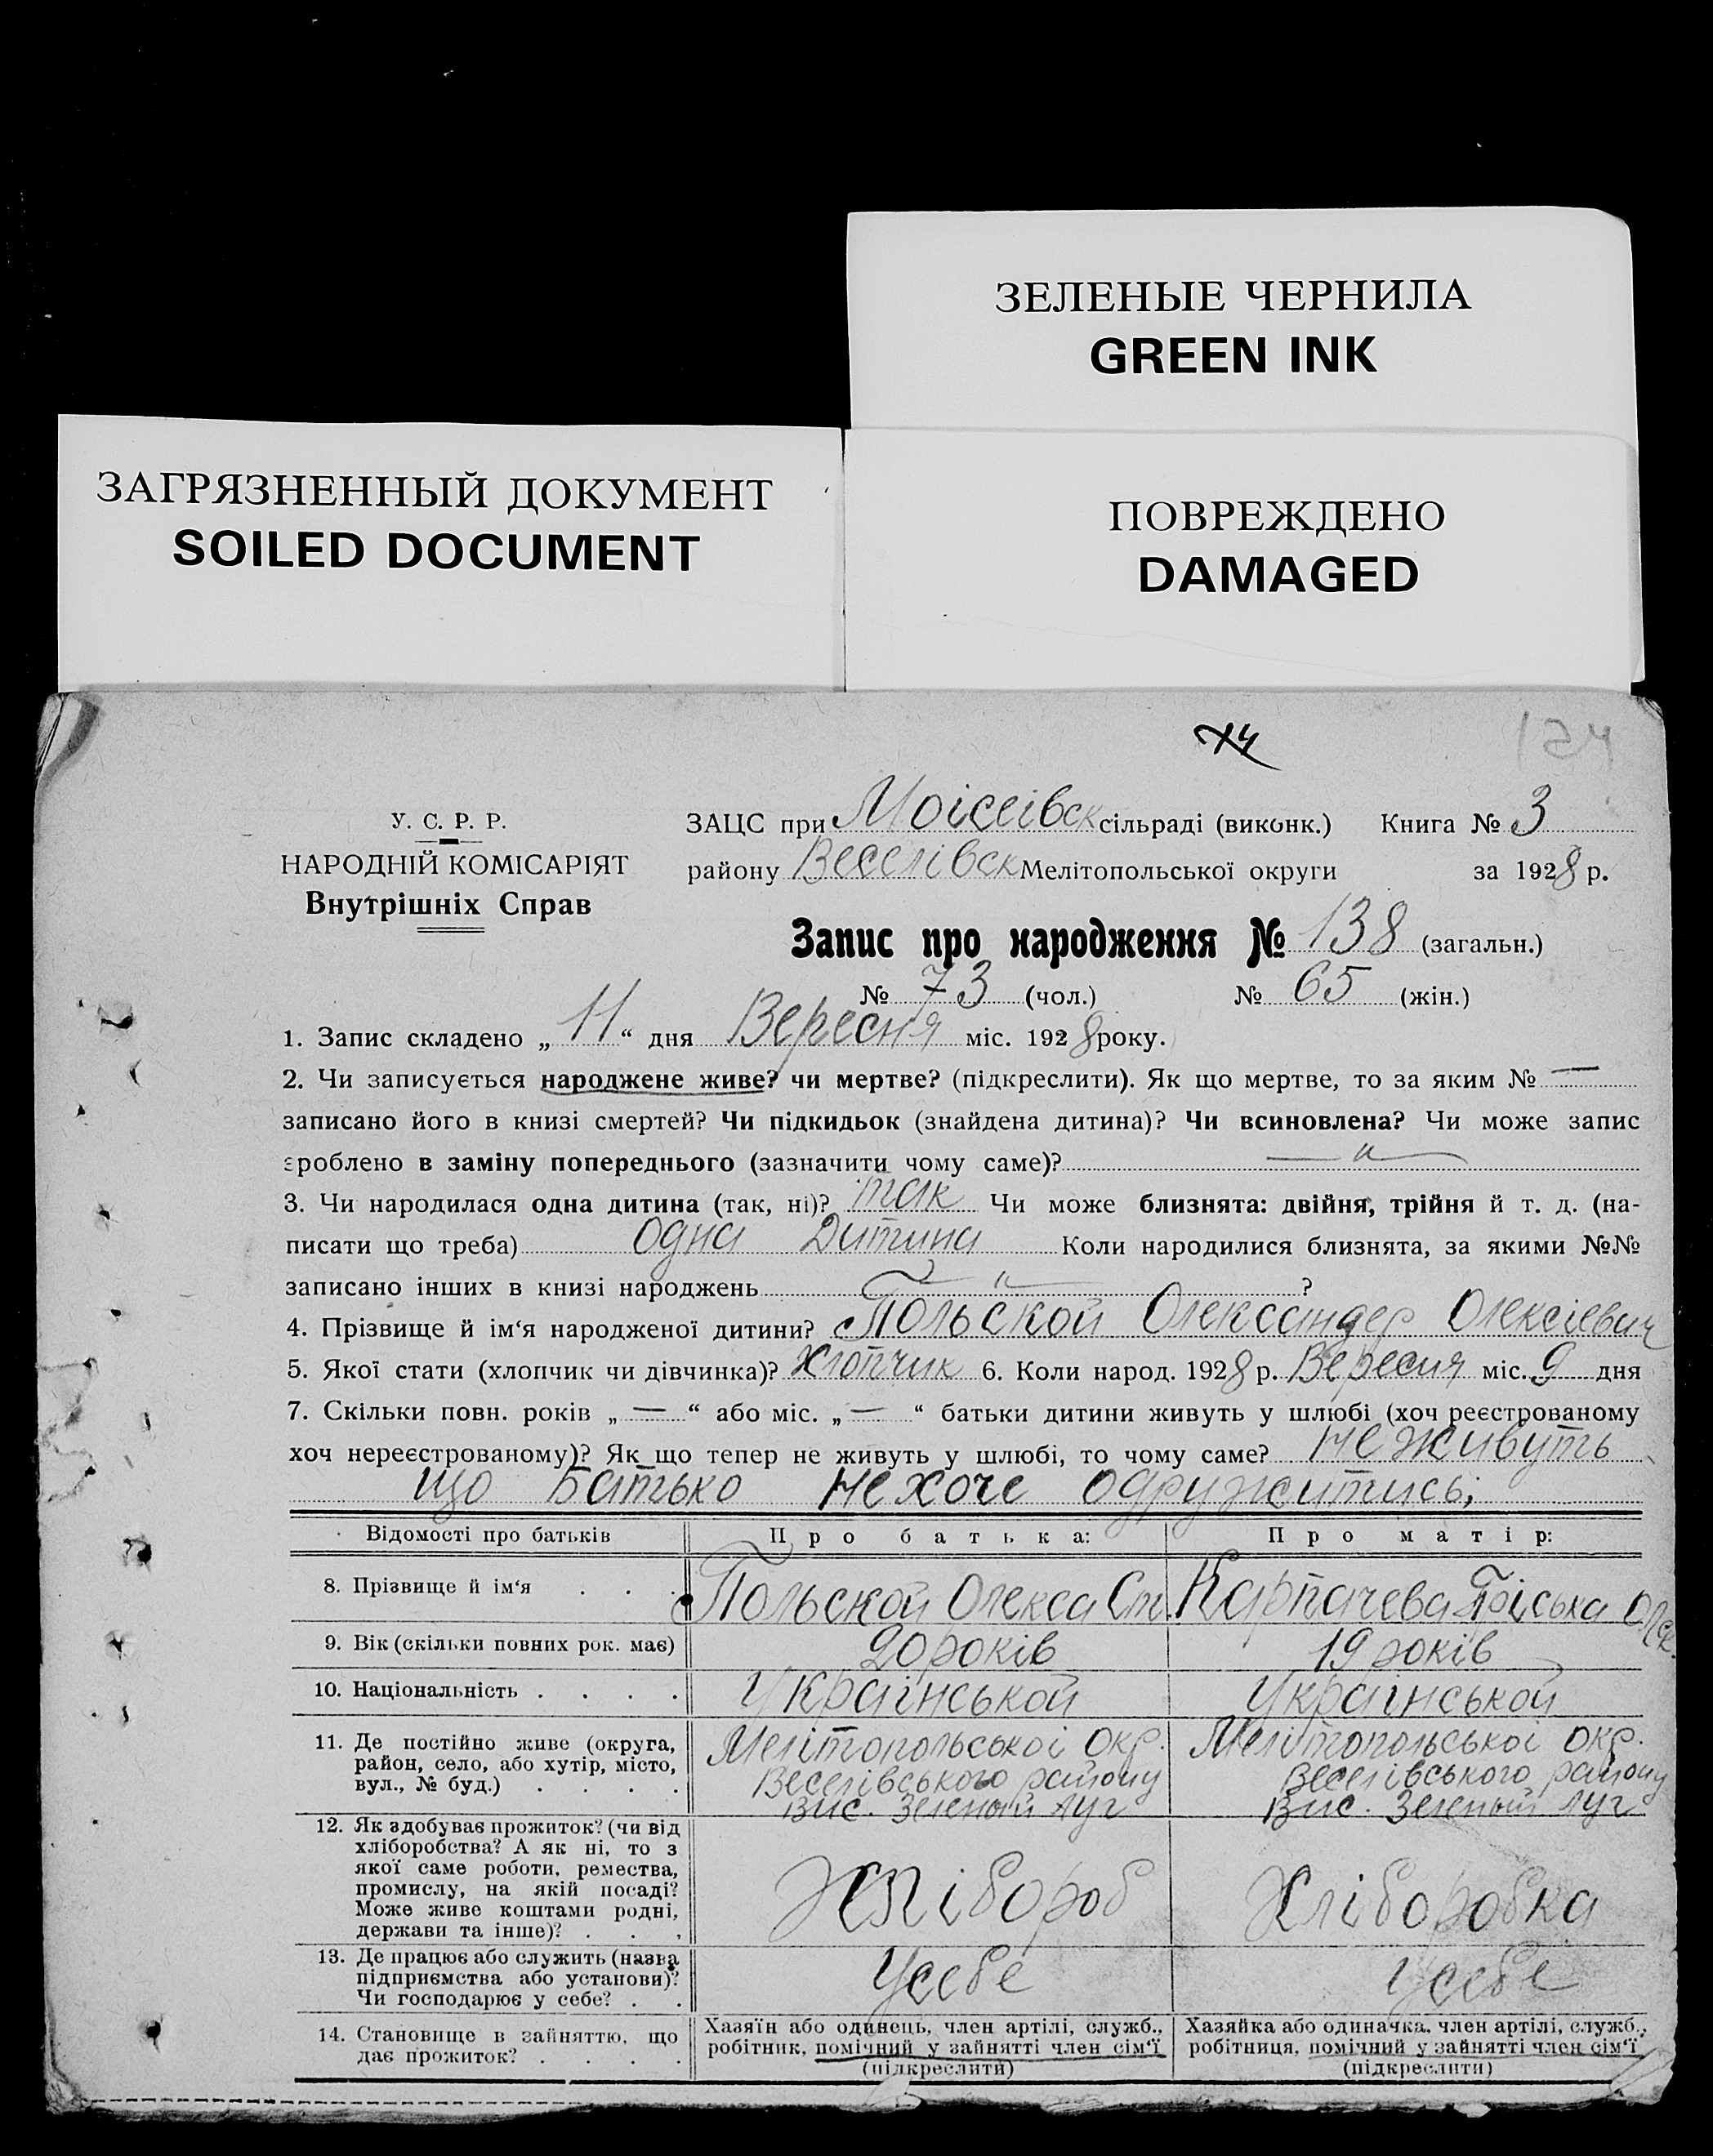 ЗЕЛЕНЫЕ ЧЕРНИЛА
GREEN INK
ЗАГРЯЗНЕННЫЙ ДОКУМЕНТ
SOILED DOCUMENT
ПОВРЕЖДЕНО
DAMAGED
124
У. С. Р. Р.
НАРОДНІЙ КОМІСАРІЯТ
Внутрішніх Справ
ЗАЦС при Моісеівск сільраді (виконк.) Книга № 3
району Веселівск Мелітопольської округи за 1928 р.
Запис про народження № 138 (загальн.)
№ 73 (чол.) № 65 (жін.)
1. Запис складено „11“ дня Вересня міс. 1928 року.
2. Чи записується народжене живе? чи мертве? (підкреслити). Як що мертве, то за яким № —
записано його в книзі смертей? Чи підкидьок (знайдена дитина)? Чи всиновлена? Чи може запис
зроблено в заміну попереднього (зазначити чому саме)? — „ —
3. Чи народилася одна дитина (так, ні)? так Чи може близнята: двійня, трійня й т. д. (на-
писати що треба) одна Дитина Коли народилися близнята, за якими №№
записано інших в книзі народжень — „ — ?
4. Прізвище й ім‘я народженої дитини? Польской Олександер Олексіевич
5. Якої стати (хлопчик чи дівчинка)? Хлопчик 6. Коли народ. 1928 р. Вересня міс. 9 дня
7. Скільки повн. років „ — “ або міс. „ — “ батьки дитини живуть у шлюбі (хоч реєстрованому
хоч нереєстрованому)? Як що тепер не живуть у шлюбі, то чому саме? не живуть
що Батько не хоче одружитись;
Відомості про батьків Про батька: Про матір:
8. Прізвище й ім‘я . . . Польской Олекса Ст. Карпачева Олек.
9. Вік (скільки повних рок. має) 20 років 19 років
10. Національність . . . . Украінськой Украінськой
11. Де постійно живе (округа, район, село, або хутір, місто, вул., № буд.) . . . .
Мелітопольськоі Окр. Мелітопольськоі Окр.
Веселівського району Веселівського району
Вис. Зеленый Луг Вис. Зеленый Луг
12. Як здобуває прожиток? (чи від
хліборобства? А як ні, то з
якої саме роботи, ремества,
промислу, на якій посаді?
Може живе коштами родні,
держави та інше)? . . .
Хлібороб Хліборобка
13. Де працює або служить (назва
підприємства або установи)?
Чи господарює у себе? . .
Усебе Усебе
14. Становище в зайняттю, що
дає прожиток? . . . .
Хазяїн або одинець, член артілі, служб.,
робітник, помічний у зайнятті член сім‘ї
(підкреслити)
Хазяйка або одиначка, член артілі, служб.,
робітниця, помічний у зайнятті член сім‘ї
(підкреслити)